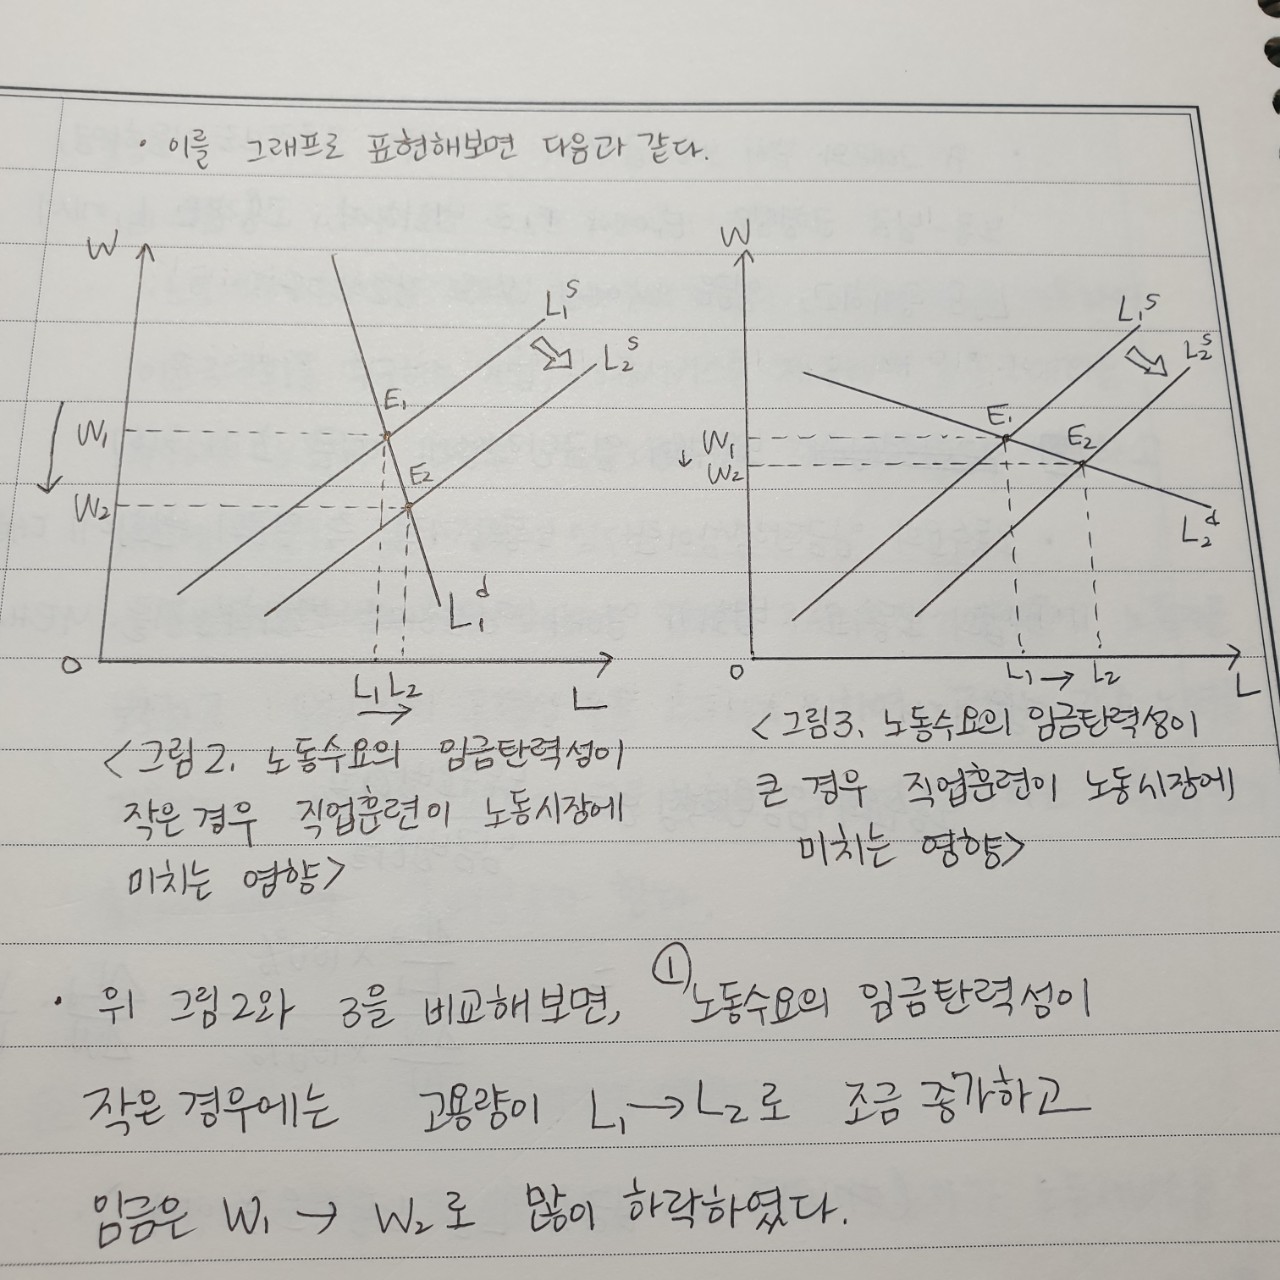 · 이를 그래프로 표현해보면 다음과 같다.
W
L₁ˢ
L₂ˢ
E₁
W₁
E₂
W₂
L₁ᵈ
O
L₁ L₂
→
L
<그림2. 노동수요의 임금탄력성이
작은 경우 직업훈련이 노동시장에
미치는 영향>
W
L₁ˢ
L₂ˢ
E₁
E₂
W₁
W₂
L₂ᵈ
O
L₁ → L₂
L
<그림3. 노동수요의 임금탄력성이
큰 경우 직업훈련이 노동시장에
미치는 영향>
· 위 그림2와 3을 비교해보면, ①노동수요의 임금탄력성이
작은 경우에는 고용량이 L₁→L₂로 조금 증가하고
임금은 W₁ → W₂로 많이 하락하였다.